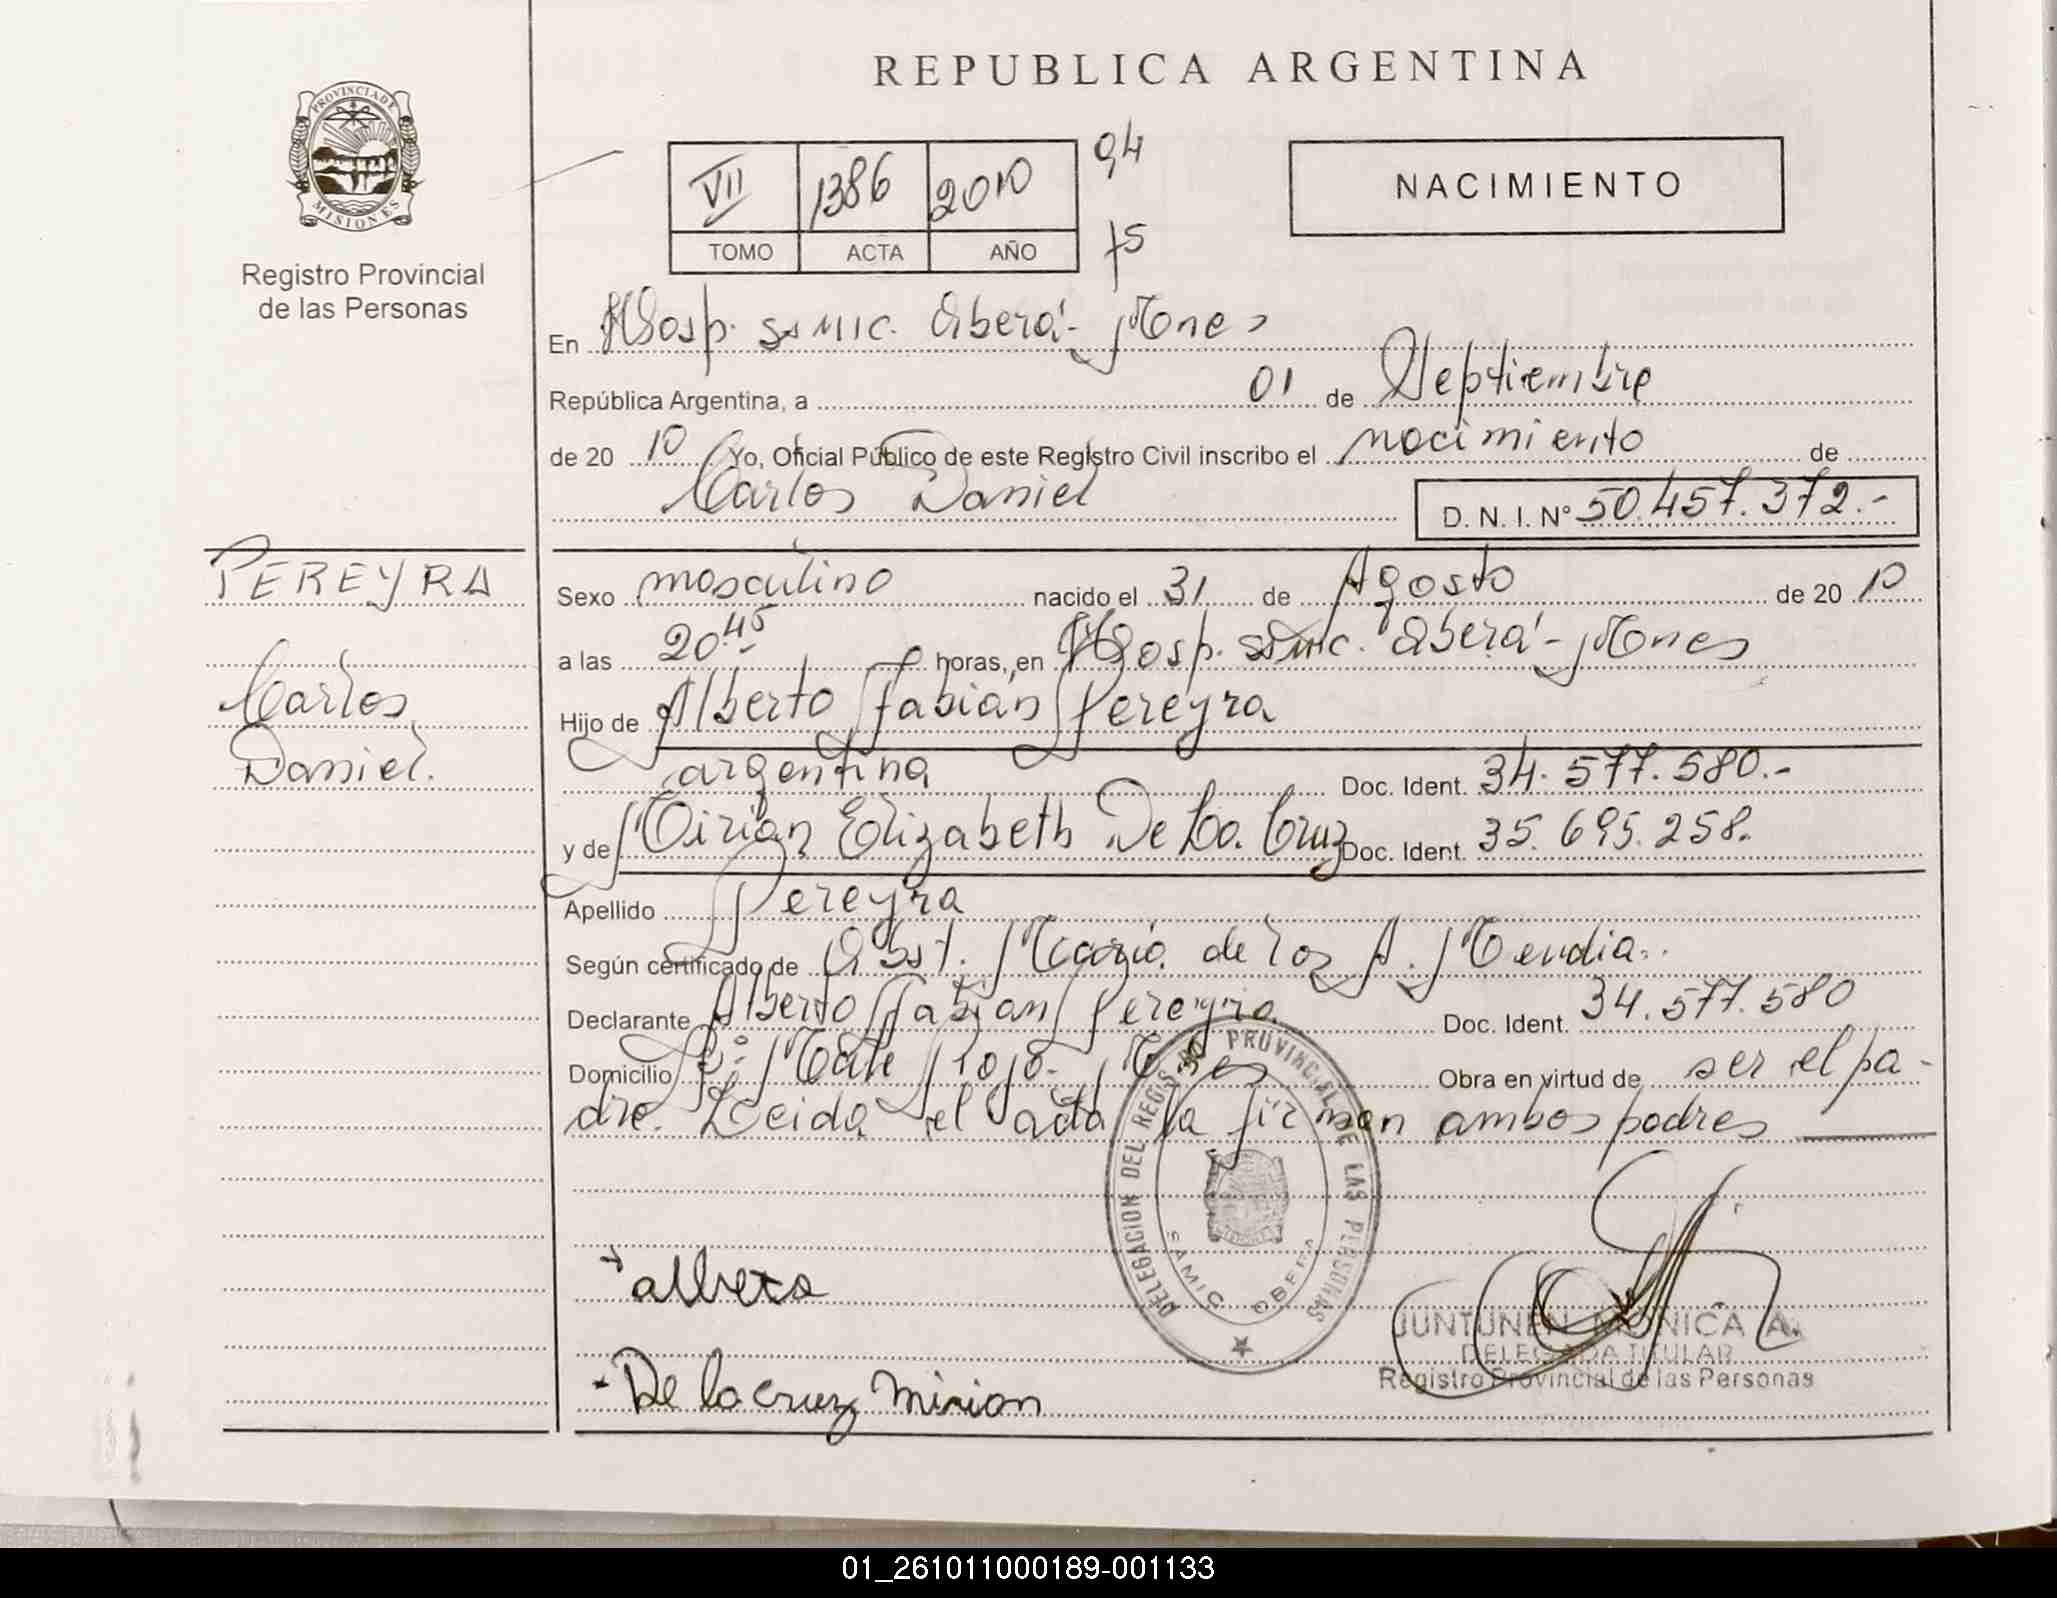 REPUBLICA ARGENTINA
PROVINCIA DE
MISIONES
Registro Provincial
de las Personas
VII 1386 2010
TOMO ACTA AÑO
94
75
NACIMIENTO
En Hosp. SAMIC. Oberá - Mnes
República Argentina, a 01 de Septiembre
de 20 10 Yo, Oficial Público de este Registro Civil inscribo el nacimiento de
Carlos Daniel D. N. I. N° 50.457.372.-
PEREYRA
Carlos
Daniel.
Sexo masculino nacido el 31 de Agosto de 20 10
a las 20.45 horas, en Hosp. SAMIC. Oberá - Mnes
Hijo de Alberto Fabian Pereyra
argentina Doc. Ident. 34.577.580.-
y de Mirian Elizabeth De La Cruz Doc. Ident. 35.695.258.
Apellido Pereyra
Según certificado de Obst. Maria de los A. Mendia..
Declarante Alberto Fabian Pereyra Doc. Ident. 34.577.580
Domicilio Mnes Obra en virtud de ser el pa-
dre. Leida el acta la firman ambos padres
DELEGACION DEL REGISTRO PROVINCIAL DE LAS PERSONAS
SAMIC OBERA
alberto
- De la cruz mirian
JUNTUNEN MONICA A.
DELEGADA TITULAR
Registro Provincial de las Personas
01_261011000189-001133